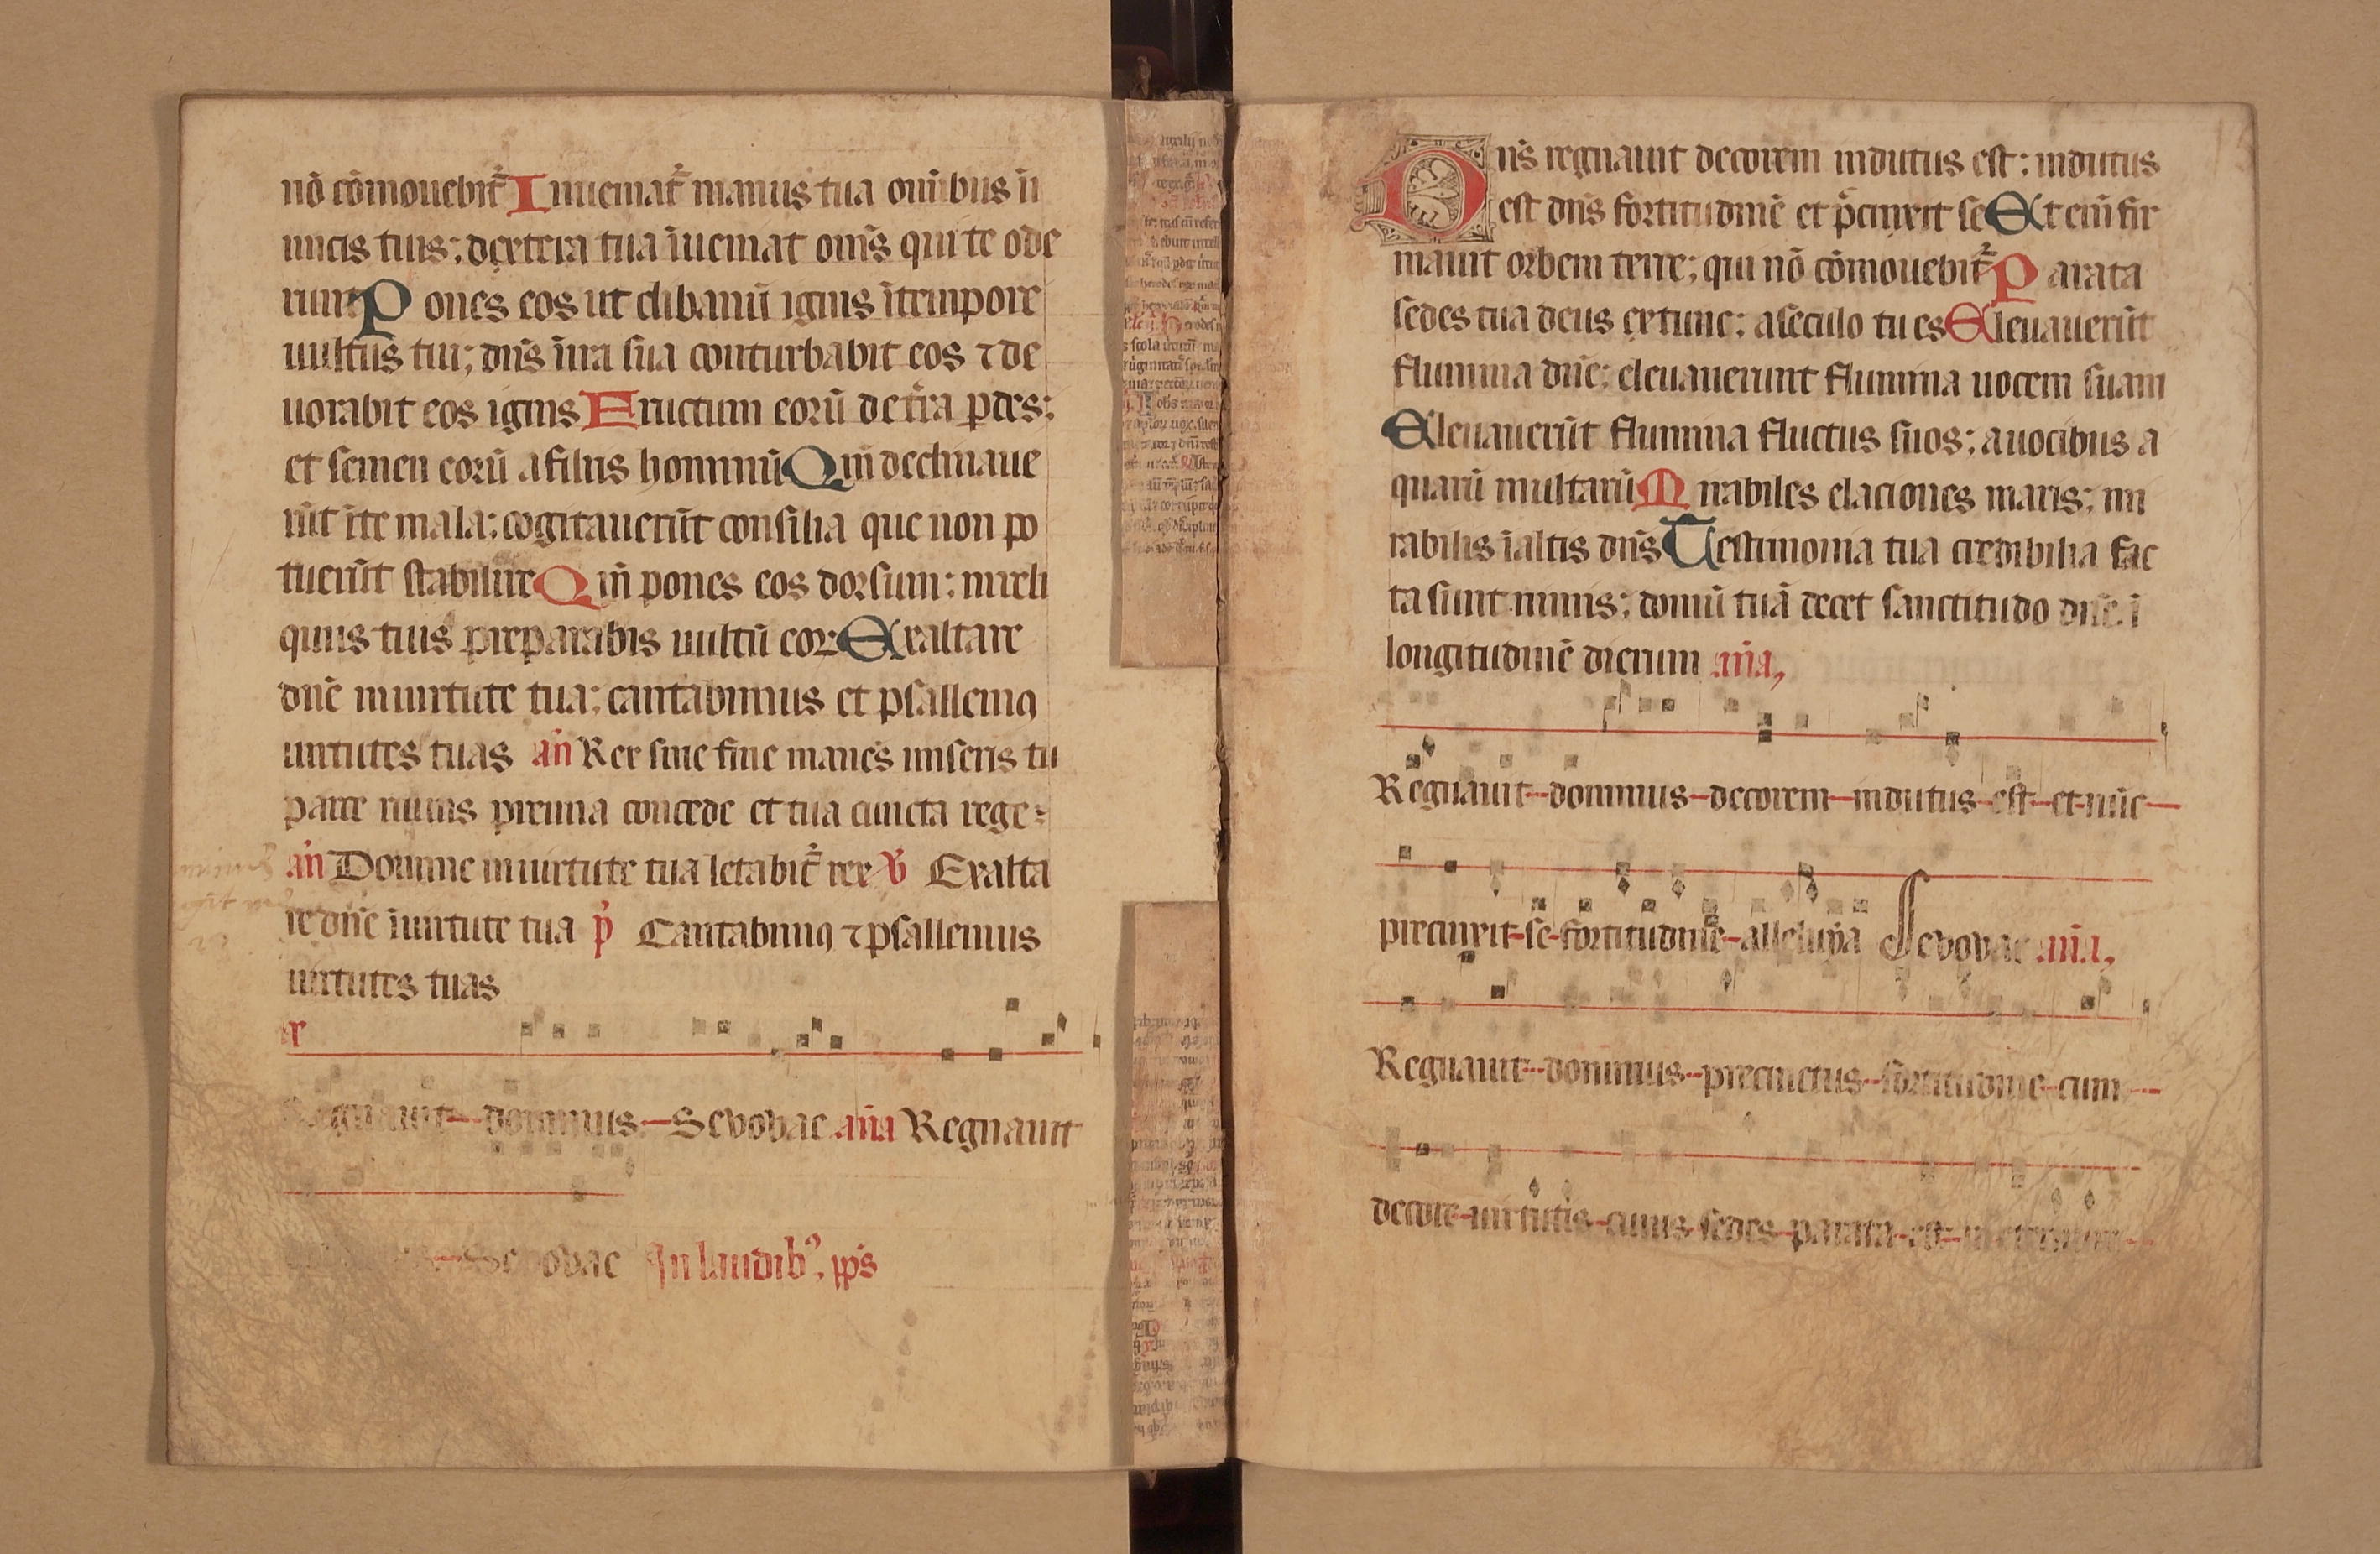 nō cōmouebit᷑ Inueniat᷑ manus tua omībus ini
micis tuis; dextera tua īueniat om̄s qui te ode
runt Pones eos ut clibanū ignis ītempore
uultus tui; dn̄s īira sua conturbabit eos ⁊ de
uorabit eos ignis Fructum eorū de t̄ra pdes;
et semen eorū a filiis hominū Qm̄ declinaue
rūt īte mala; cogitauerūt consilia que non po
tuerūt stabilire Qm̄ pones eos dorsum; in reli
quiis tuis preparabis uultū eor Exaltare
dn̄e inuirtute tua; cantabimus et psallemꝯ
uirtutes tuas an̄ Rex sine fine manēs miseris tu
parce ruinis prenna concede et tua cuncta rege
an̄ Domine inuirtute tua letabit᷑ rex ꝟ Exalta
re dn̄e īuirtute tua p Cantabimꝯ ⁊ psallemus
uirtutes tuas
Regnauit dominus Seuouae an̄a Regnauit
Seuouae In laudibꝰ. pp̄s
Dn̄s regnauit decorem indutus est; indutus
est dn̄s fortitudinē et p̄cinxit se Et eni fir
mauit orbem terre; qui nō cōmouebit᷑ Parata
sedes tua deus extunc; aseculo tu es Eleuauerūt
flumina dn̄e; eleuauerunt flumina uocem suam
Eleuauerūt flumina fluctus suos; auocibus a
quarū multarū Mirabiles elaciones maris; mi
rabilis īaltis dn̄s Testimonia tua credibilia fac
ta sunt nimis; domū tuā decet sanctitudo dn̄e ī
longitudinē dierum an̄a,
Regnauit dominus decorem indutus est et nūc
precinxit se fortitudine alleluya Seuouae an̄a,
Regnauit dominus precinctus fortitudine cum
decore uirtutis cuius sedes parata est in eternum